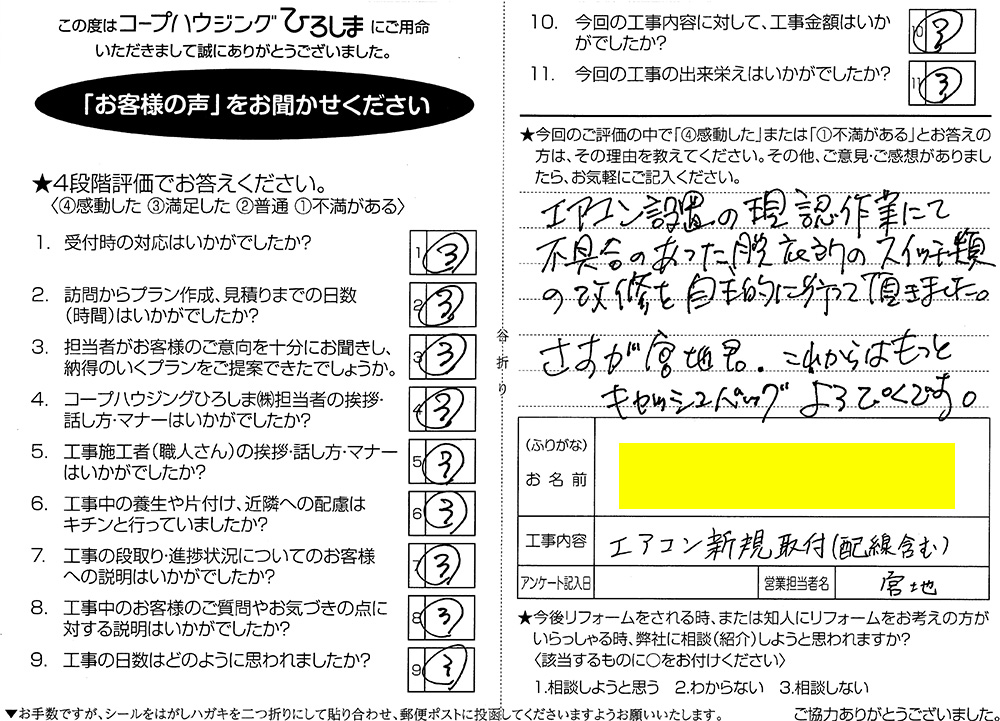 この度はコープハウジングひろしまにご用命
いただきまして誠にありがとうございました。
「お客様の声」をお聞かせください
★4段階評価でお答えください。
〈④感動した ③満足した ②普通 ①不満がある〉
1. 受付時の対応はいかがでしたか?
1 ③
2. 訪問からプラン作成、見積りまでの日数
(時間)はいかがでしたか?
2 ③
3. 担当者がお客様のご意向を十分にお聞きし、
納得のいくプランをご提案できたでしょうか。
3 ③
4. コープハウジングひろしま㈱担当者の挨拶・
話し方・マナーはいかがでしたか?
4 ③
5. 工事施工者(職人さん)の挨拶・話し方・マナー
はいかがでしたか?
5 ③
6. 工事中の養生や片付け、近隣への配慮は
キチンと行っていましたか?
6 ③
7. 工事の段取り・進捗状況についてのお客様
への説明はいかがでしたか?
7 ③
8. 工事中のお客様のご質問やお気づきの点に
対する説明はいかがでしたか?
8 ③
9. 工事の日数はどのように思われましたか?
9 ③
▼お手数ですが、シールをはがしハガキを二つ折りにして貼り合わせ、郵便ポストに投函してくださいますようお願いいたします。
谷折り
10. 今回の工事内容に対して、工事金額はいか
がでしたか?
10 ③
11. 今回の工事の出来栄えはいかがでしたか?
11 ③
★今回のご評価の中で「④感動した」または「①不満がある」とお答えの
方は、その理由を教えてください。その他、ご意見・ご感想がありまし
たら、お気軽にご記入ください。
エアコン設置の現認作業にて
不具合のあった脱衣所のスイッチ類
の改修を自主的に行って頂きました。
さすが宮地君.これからはもっと
キャッシュバックよろぴくです。
(ふりがな)
お名前
工事内容 エアコン新規取付(配線含む)
アンケート記入日 営業担当者名 宮地
★今後リフォームをされる時、または知人にリフォームをお考えの方が
いらっしゃる時、弊社に相談(紹介)しようと思われますか?
〈該当するものに○をお付けください〉
1.相談しようと思う 2.わからない 3.相談しない
ご協力ありがとうございました。